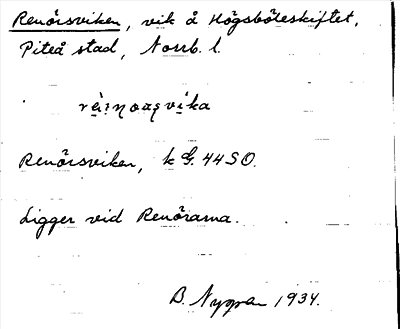 Renörsviken, vik å Högsböleskiftet,
Piteå stad, Norrb. l.
Renörsviken, k G. 44 SO.
Ligger vid Renörarna.
B. Nygren 1934.